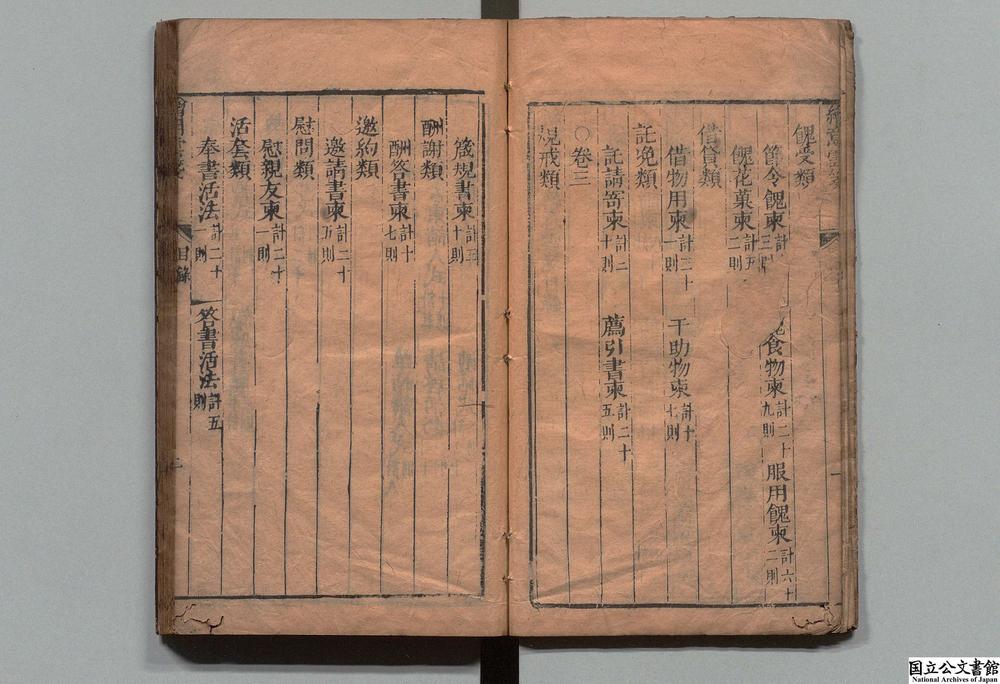 餽受類
節令餽柬計三
食物柬計二十九則
服用餽柬計六十二則
餽花菓柬計五二則
借貸類
借物用柬計三十一則
干助物柬計十七則
託浼類
託請寄柬計二十則
薦引書柬計二十五則
○卷三
規戒類
箴規書柬計五十則
酬謝類
酬答書柬計十七則
邀約類
邀請書柬計二十五則
慰問類
慰親友柬計二十一則
活套類
奉書活法計二十一則
答書活法計五則
目錄
国立公文書館
National Archives of Japan